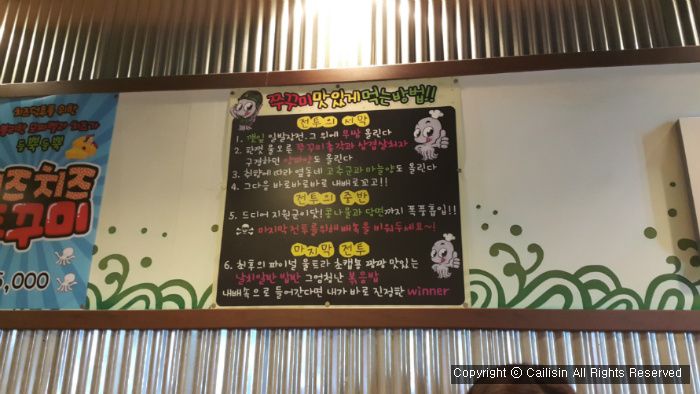 치즈덕후를 위한
듬뿍듬뿍
즈치즈
꾸미
5,000
쭈꾸미 맛있게 먹는방법!!
전투의 시작
1. 깻잎 일발장전. 그 위에 무쌈 올린다
2. 판젯 올오른 쭈꾸미총각과 삼겹살처자
구경하던 양파양도 올린다
3. 취향에 따라 옆동네 고추군과 마늘양도 올린다
4. 그다음 바로바로바로 내배로고고!!
전투의 중반
5. 드디어 지원군이닷! 콩나물과 당면까지 폭풍흡입!!
마지막 전투를위해 배속을 비워두세요~!
마지막 전투
6. 최후의 파이널 울트라 초캡숑 짱짱 맛있는
날치알반 밥반 그엄청난 볶음밥
내배속으로 들어간다면 내가 바로 진정한 winner
Copyright ⓒ Cailisin All Rights Reserved